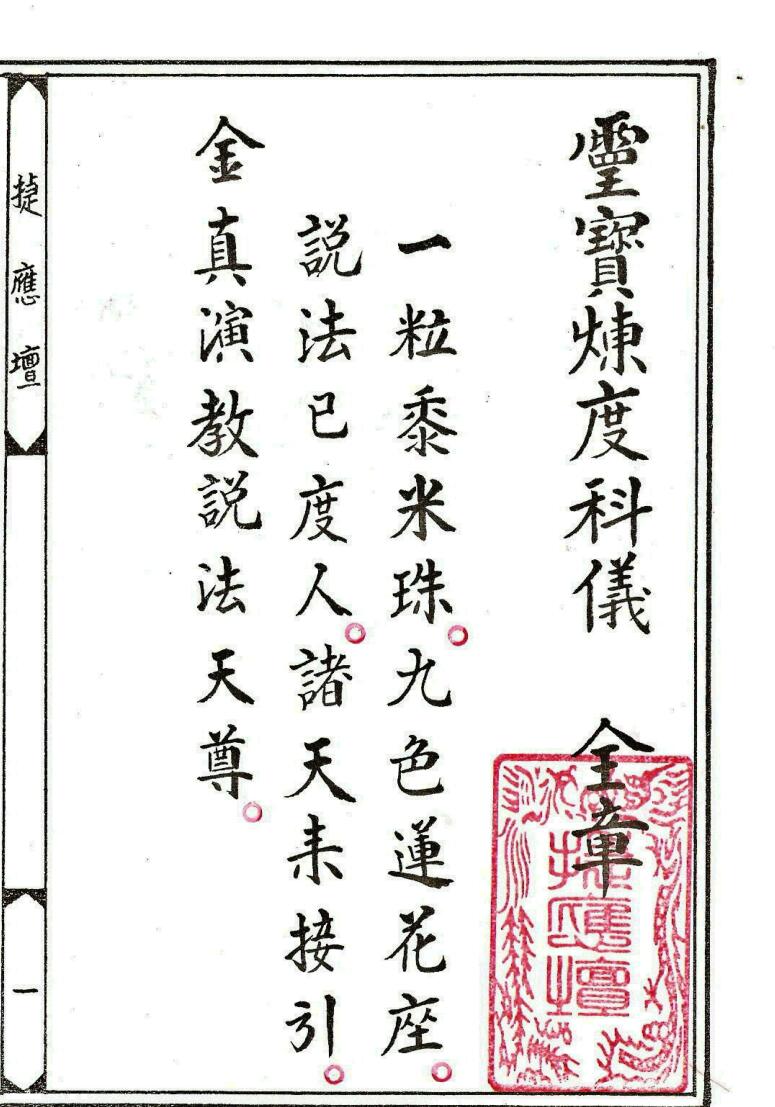 靈寶煉度科儀 全章
一粒黍米珠。九色蓮花座。
説法已度人。諸天來接引。
金真演教説法天尊。
捷應壇
一
捷應壇